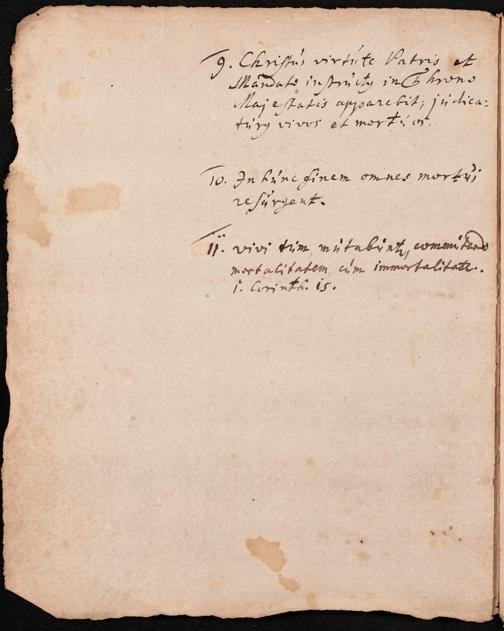 9. Christus virtute Patris et
Mandato instructus in Throno
Majestatis apparebit, judica:
turus vivos et mortuos.
10. In hunc finem omnes mortui
resurgent.
11. vivi tum mutabuntur, commutando
mortalitatem cum immortalitate.
1. Corinth. 15.